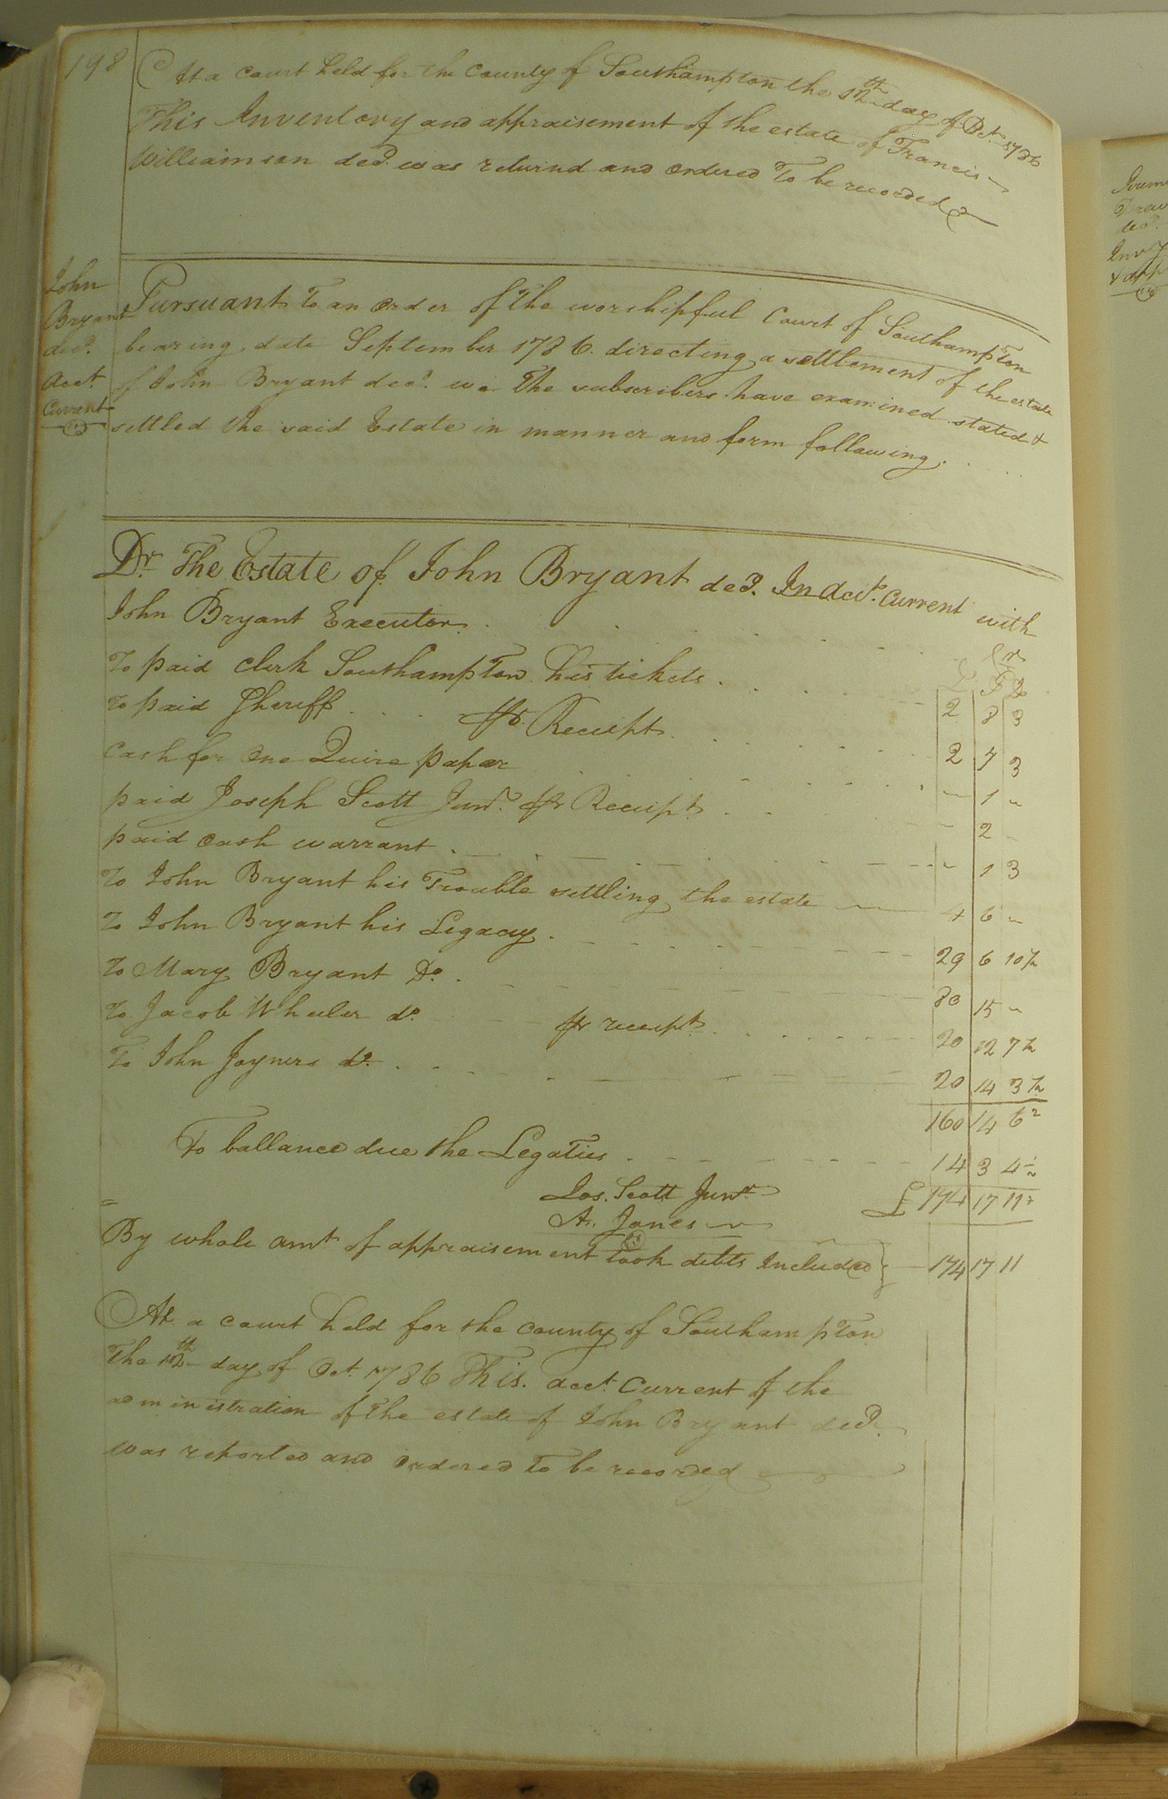 198
At a court held for the County of Southampton the 12th day of Oct. 1786
This Inventory and appraisement of the estate of Francis
Williamson decd. was returnd and ordered To be recorded
John
Bryant
decd.
Acct.
Current
Pursuant To an order of the worshipful Court of Southampton
bearing date September 1786. directing a settlement of the estate
of John Bryant decd. we The subscribers have examined stated &
settled the said Estate in manner and form following.
Dr. The Estate of John Bryant decd. In Acct. Current with
John Bryant Executor.
£ S D
To paid Clerk Southampton his tickets 2 8 3
To paid Sheriff pr. Receipt 2 7 3
Cash for one Quire paper 1
paid Joseph Scott Junr. pr Receipt 2
paid cash warrant 1 3
To John Bryant his Trouble settling the estate 4 6
To John Bryant his Legacy 29 6 10½
To Mary Bryant Do. 80 15
To Jacob Wheeler do. pr receipt 20 12 7½
To John Joyners do. 20 14 3½
160 14 6½
To ballance due the Legaties 14 3 4½
Jos. Scott Junr.
£ 174 17 11
A. Jones
By whole amt. of appraisement took debts Included 174 17 11
At a court held for the county of Southampton
The 12th day of Oct. 1786 This. acct. Current of the
administration of the estate of John Bryant decd.
was reported and ordered To be recorded